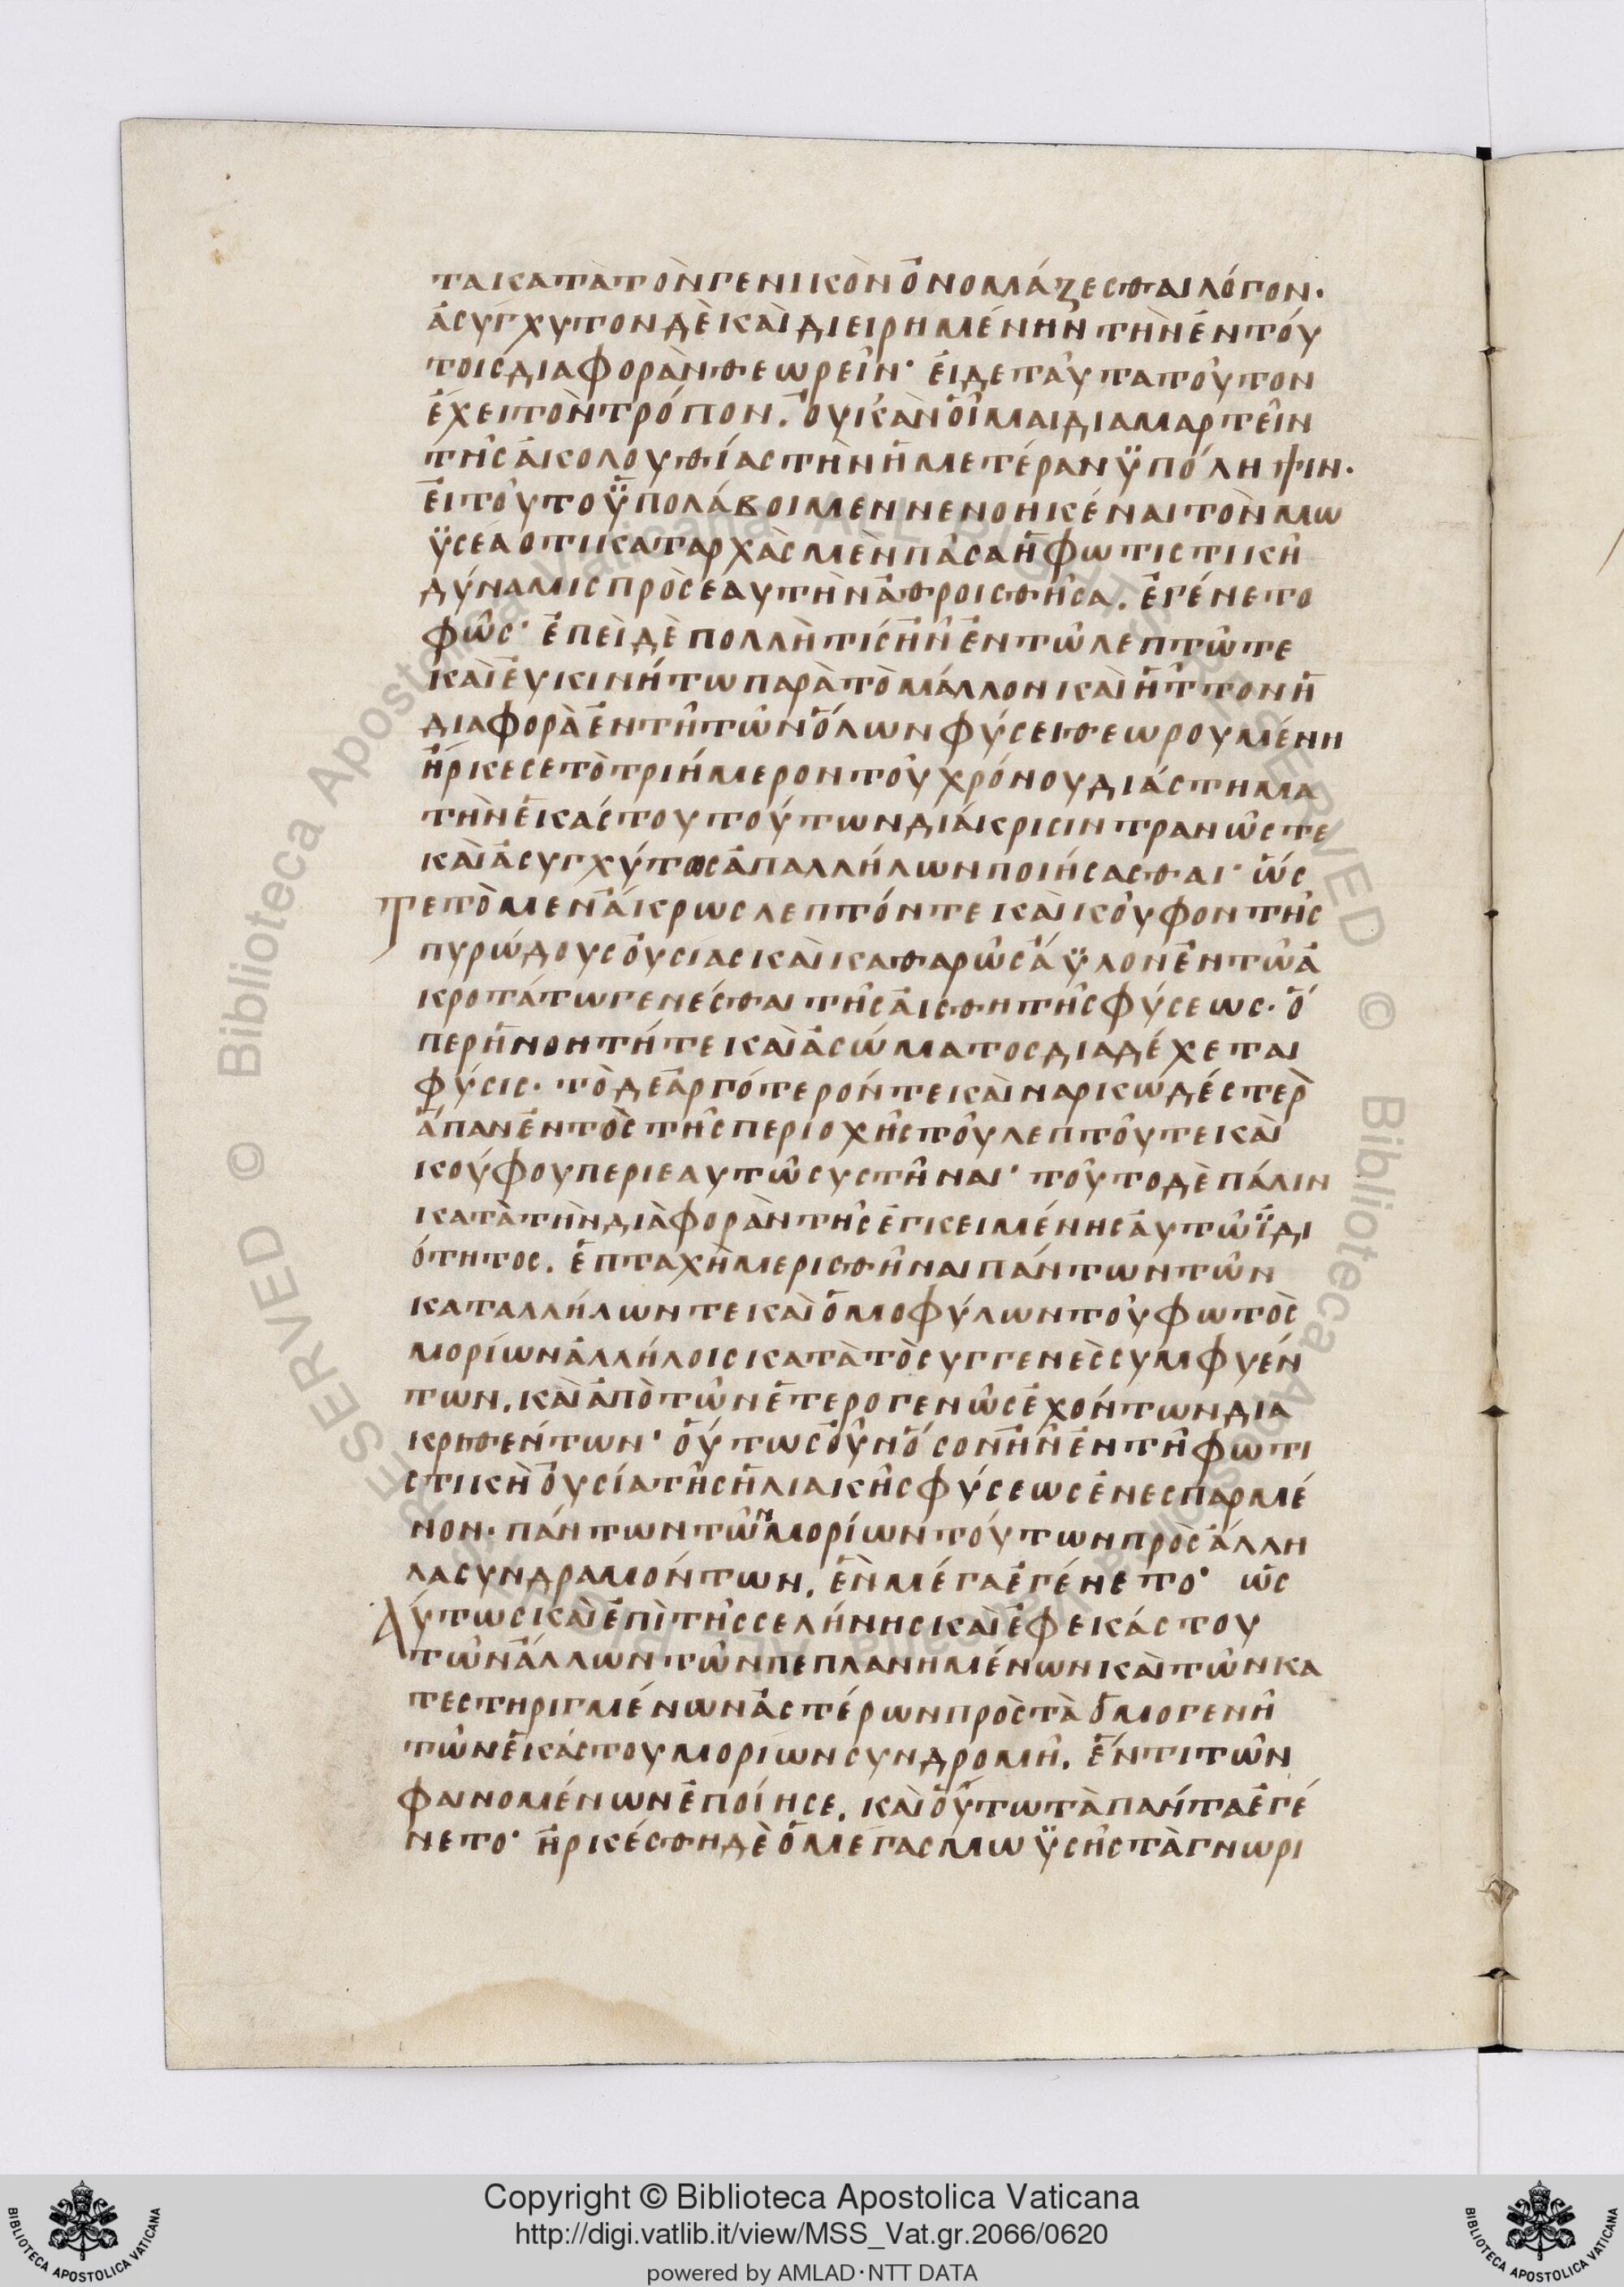 ται κατὰ τὸν γενικὸν ὀνομάζεσθαι λόγον·
ἀσύγχυτον δὲ καὶ διειρημένην τὴν ἐν τού
τοις διαφορὰν θεωρεῖν· εἰ δὲ ταῦτα τοῦτον
ἔχει τὸν τρόπον. οὐκ ἂν οἶμαι διαμαρτεῖν
τῆς ἀκολουθίας τὴν ἡμετέραν ϋπόληψιν.
εἰ τοῦτο ϋπολάβοιμεν νενοηκέναι τὸν Μω
ϋσέα ὅτι καταρχὰς μὲν πᾶσα ἡ φωτιστικὴ
δύναμις πρὸς ἑαυτὴν ἀθροισθῆσα. ἐγένετο
φῶς· ἐπεὶ δὲ πολλὴ τίς ἦν ἐν τῶ λεπτῶ τε
καὶ εὐκινήτω παρὰ τὸ μάλλον καὶ ἧττον ἡ
διαφορὰ ἐν τῆ τῶν ὅλων φύσει θεωρουμένη
ἤρκεσε τὸ τριήμερον τοῦ χρόνου διάστημα
τὴν ἑκάστου τούτων διάκρισιν τρανῶς τε
καὶ ἀσυγχύτως ἀπαλλήλων ποιήσασθαι· ὥς
τε τὸ μεν ἄκρως λεπτόν τε καὶ κοῦφον τῆς
πυρώδους οὐσίας καὶ καθαρῶς ἄϋλον ἐν τῶ ἀ
κροτάτω γενέσθαι τῆς αἰσθητῆς φύσεως· ὅ
περ ἡ νοητή τε καὶ ἀσώματος διαδέχεται
φύσις· τὸ δε ἀργότερόν τε καὶ ναρκωδέστερ̀
ἅπαν ἐντὸς τῆς περιοχῆς τοῦ λεπτοῦ τε καὶ
κούφου περι εαυτῶ συστῆναι· τοῦτο δὲ πάλιν
κατὰ τὴν διὰφορὰν τῆς ἐγκειμένης αὐτῶ ϊδι
ότητος. ἑπταχῆ μερισθῆναι πάντων τῶν
καταλλήλων τε καὶ ὁμοφύλων τοῦ φωτὸς
μορίων ἀλλήλοις κατὰ τὸ συγγενὲς συμφυέν
των. καὶ ἀπὸ τῶν ἑτερογενῶς ἐχόντων δια
κριθεντων· οὕτως οὖν ὅσον ἦν ἐν τῆ φωτι
στικὴ οὐσία τῆς ἡλιακῆς φύσεως ἐνεσπαρμέ
νον· πάντων τῶν μορίων τούτων πρὸς ἄλλη
λα συνδραμόντων. ἓν μέγα ἐγένετο· ὡς
Αύτως καὶ ἐπὶ τῆς σελήνης καὶ ἐφ εκάστου
τῶν ἄλλων τῶν πεπλανημένων καὶ τῶν κα
τεστηριγμένων ἀστέρων πρὸς τὰ ὁμογενῆ
τῶν ἑκάστου μοριων συνδρομῆ. ἕν τι τῶν
φαινομένων ἐποίησε. καὶ οὕτω τὰ πάντα ἐγέ
νετο· ἠρκέσθη δὲ ὁ μεγας Μωϋσῆς τὰ γνωρι
Copyright © Biblioteca Apostolica Vaticana
http://digi.vatlib.it/view/MSS_Vat.gr.2066/0620
powered by AMLAD·NTT DATA